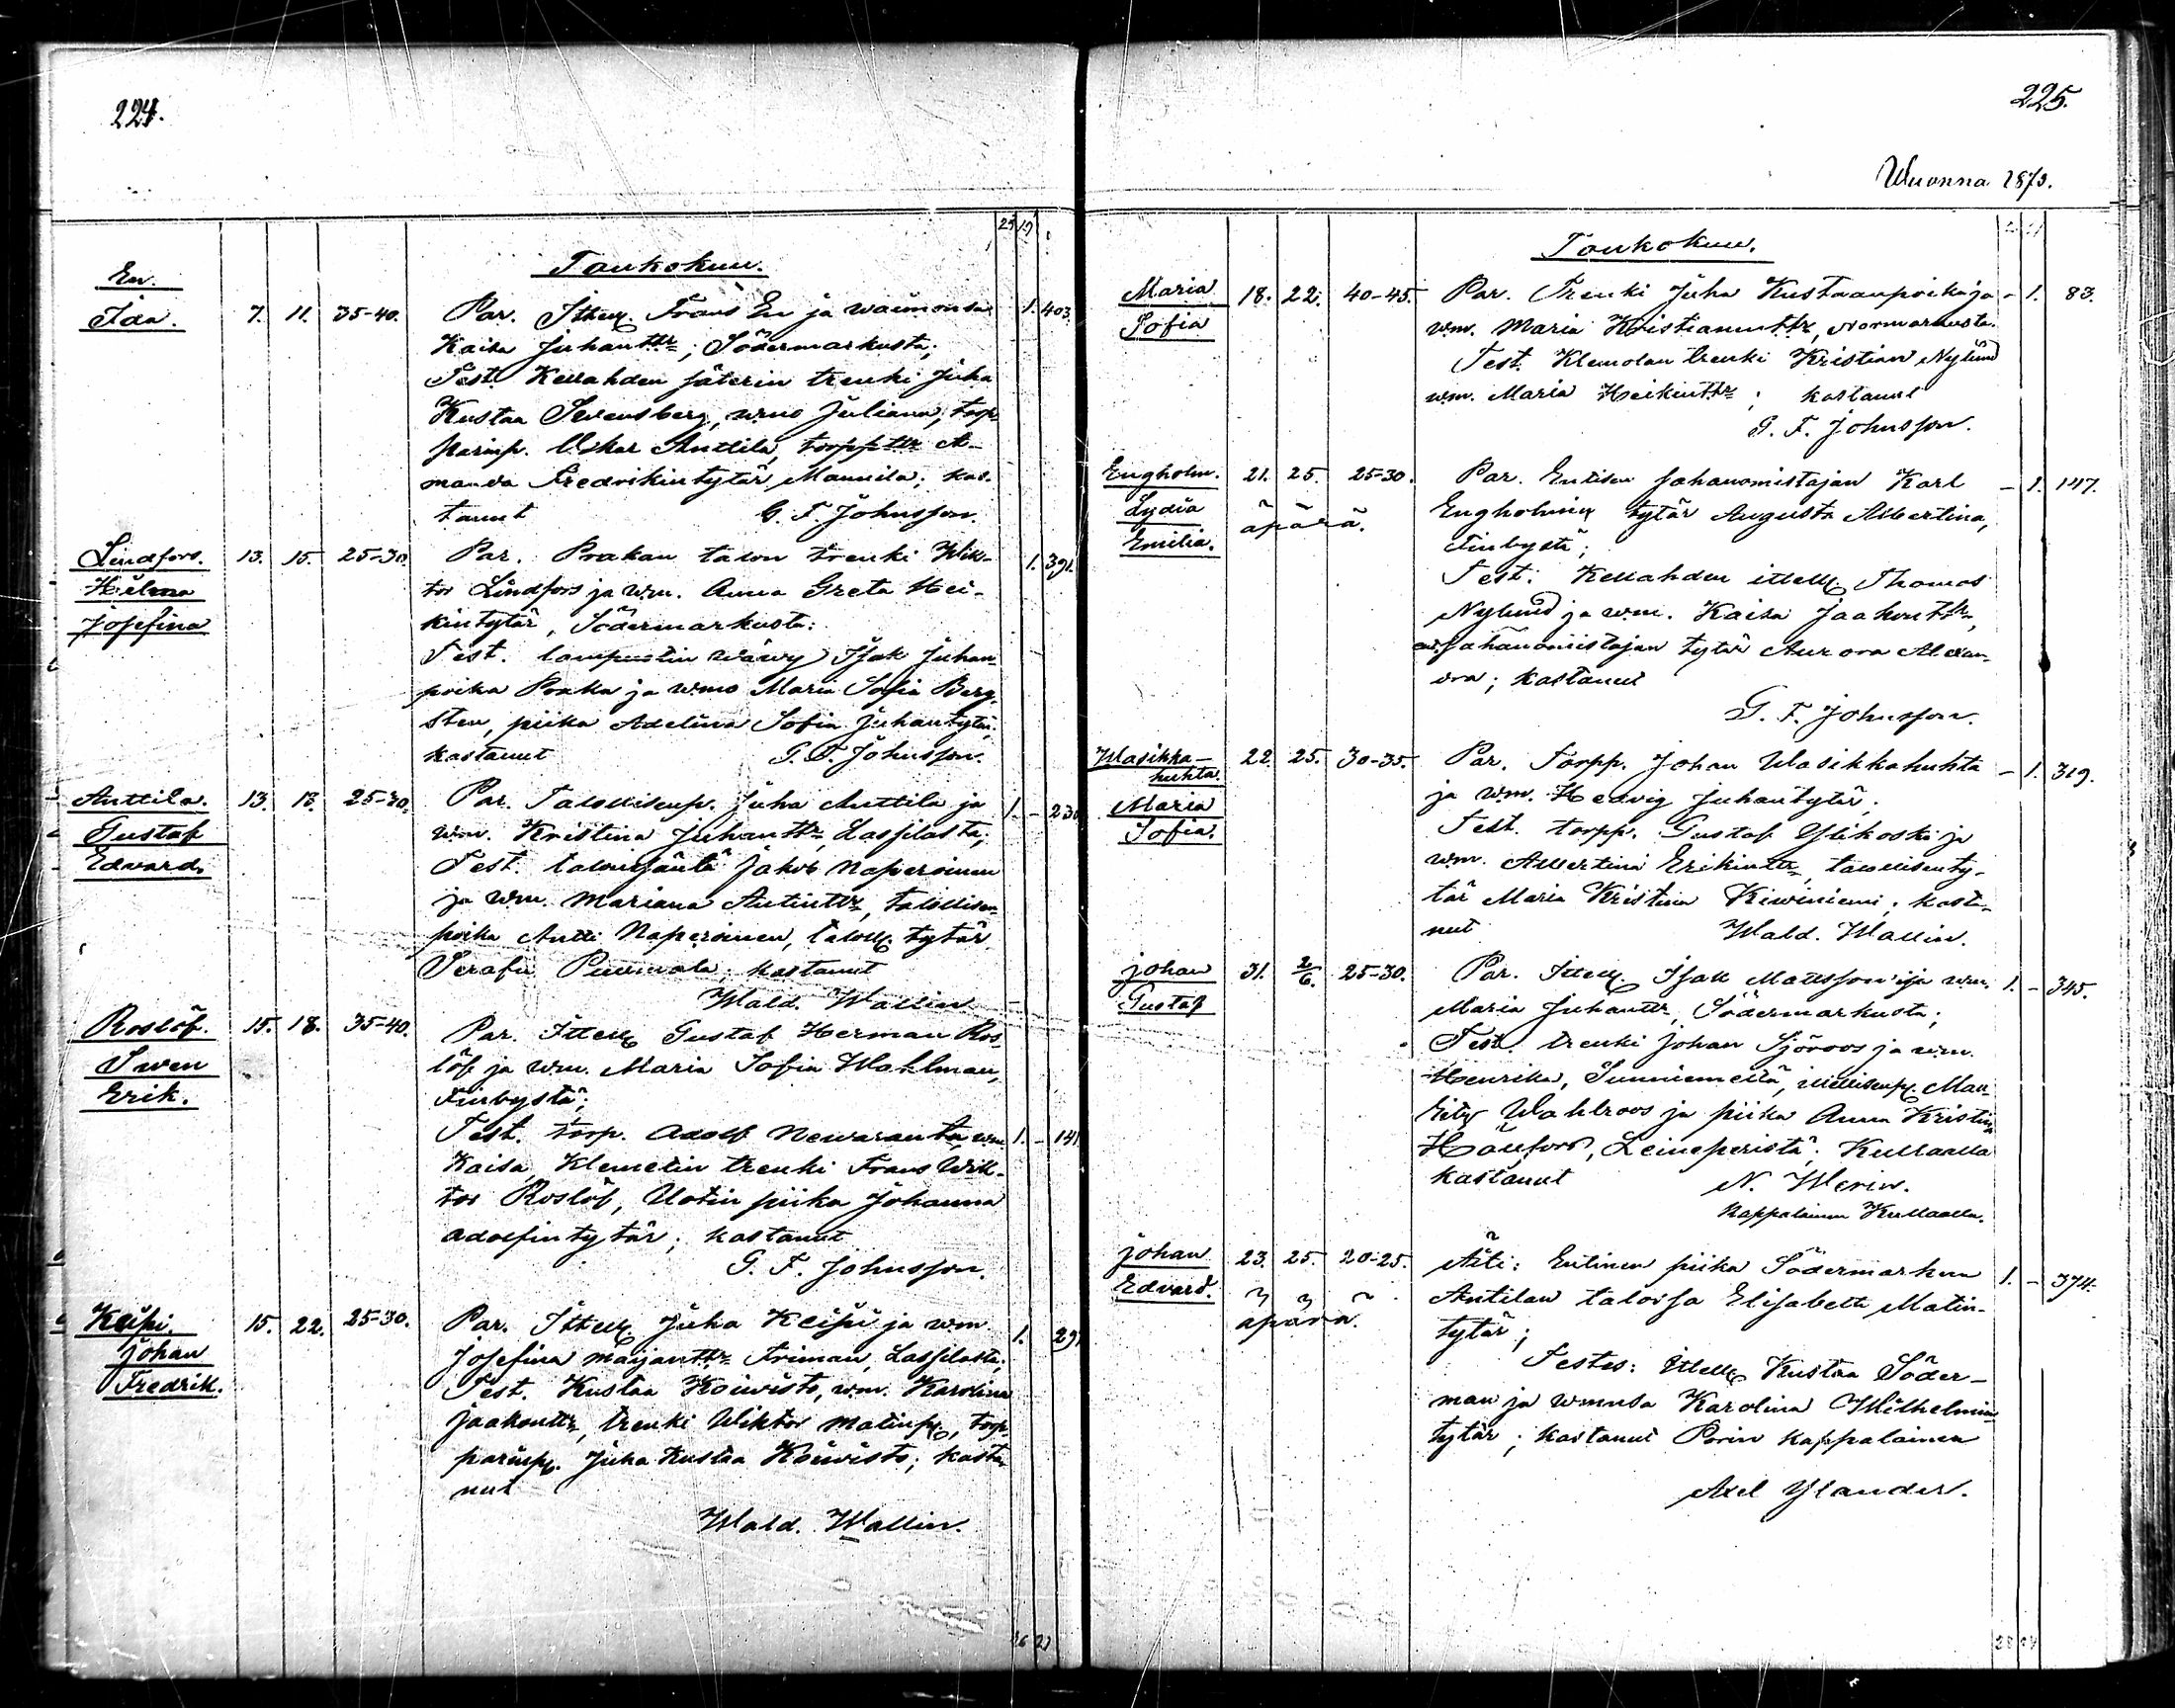 224.
29 19
Toukokuu.
En.
Ida. 7. 11. 35-40. Par. Ittell. Frans En ja waimonsa 1. 403.
Kaisa Juhanttr; Södermarkusta;
Test. Kellahden säterin trenki Juha
Kustaa Sevensberg, wmo Juliana, torp-
parinp. Oskar Anttila, torppttr A-
manda Fredrikintytär, Mannila; kas-
tanut G. F. Johnsson.
Lindfors. 13. 15. 25-30. Par. Prakan talon trenki Wik- 1. 391.
Hilma tor Lindfors ja wm. Anna Greta Hei-
Josefina kintytär, Södermarkusta:
Test. lampuotin wäwy Isak Juhan-
poika Praka ja wmo Maria Sofia Berg-
sten, piika Adelina Sofia Juhantytär;
kastanut G. F. Johnsson.
Anttila. 13. 18. 25-30. Par. Talollisenp. Juha Anttila ja 1. - 230
Gustaf wm. Kristina Juhanttr, Lassilasta;
Edvard. Test. talonisäntä Jakob Naperoinen
ja wm. Mariana Antinttr, talollisen-
poika Antti Naperoinen, taloll. tytär
Serafi ; kastanut
Wald. Wallin
Roslöf. 15. 18. 35-40. Par. Ittell. Gustaf Herman Ros-
Swen löf ja wm. Maria Sofia Wahlman,
Erik. Finbystä;
Test. torp. Adolf Newaranta, wm. 1. - 141
Kaisa, Klemetin trenki Frans Wik-
tor Roslöf, Uotin piika Johanna
Adolfintytär; kastanut
G. F. Johnsson.
Keipi. 15. 22. 25-30. Par. Ittell. Juha Keipi ja wm. 1. 291
Johan Josefina Maijanttr Friman, Lassilasta;
Fredrik. Test. Kustaa Koiwisto, wm. Karolina
Jaakonttr, trenki Wiktor Matinp., torp-
parinp. Juha Kustaa Koiwisto; kasta-
nut
Wald. Wallin.
225.
Wuonna 1873.
Toukokuu.
Maria 18. 22. 40-45. Par. Trenki Juha Kustaanpoika ja - 1. 83.
Sofia wm. Maria Kristianinttr, Normarkusta.
Test. Klemolan trenki Kristian Nylund
wm. Maria Heikinttr; kastanut
G. F. Johnsson.
Engholm. 21. 25. 25-30. Par. Entisen sahanomistajan Karl - 1. 147.
Lydia äpärä. Engholmin tytär Augusta Albertina,
Emilia. Finbystä;
Test. Kellahden ittell. Thomas
Nylund ja wm. Kaisa Jaakontr,
ent. sahanomistajan tytär Aurora Alexan-
dra; kastanut
G. F. Johnsson.
Wasikka- 22. 25. 30-35. Par. Torpp. Johan Wasikkahuhta - 1. 319.
huhta. ja wm. Hedvig Juhantytär.
Maria Test. torpp. Gustaf Ylikoski ja
Sofia. wm. Albertina Erikinttr, talollisenty-
tär Maria Kristina Kiwiniemi; kasta-
nut Wald. Wallin.
Johan 31. 2/6. 25-30. Par. Ittell. Isak Mattsson ja wm. 1. - 345.
Gustaf Maria Juhanttr, Södermarkusta;
Test. trenki Johan Sjöroos ja wm.
Henrika, Sunniemeltä, itellisenp. Mau-
ritz Wahlroos ja piika Anna Kristina
Hällfors, Leineperistä; Kullaalla
kastanut N. Merin.
Kappalainen Kullaalla.
Johan 23. 25. 20-25. Äiti: Entinen piika Södermarkun 1. - 374.
Edvard. äpärä. Antilan talossa Elisabeth Matin-
tytär;
Testes: Ittell. Kustaa Söder-
man ja wmnsa Karolina Wilhelmin-
tytär; kastanut Porin kappalainen
Axel Ylander.